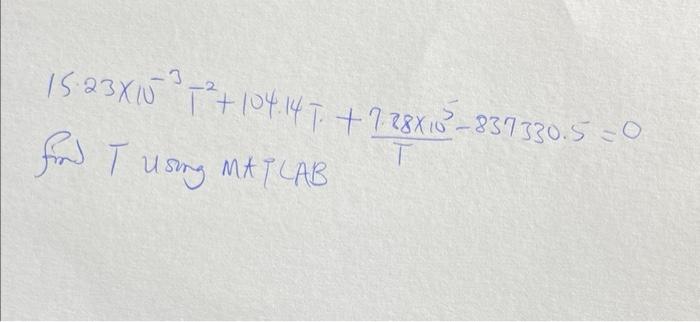 15.23×10⁻³ T² + 104.14T. + 7.28×10⁵/T - 837330.5 = 0
find T using MATLAB